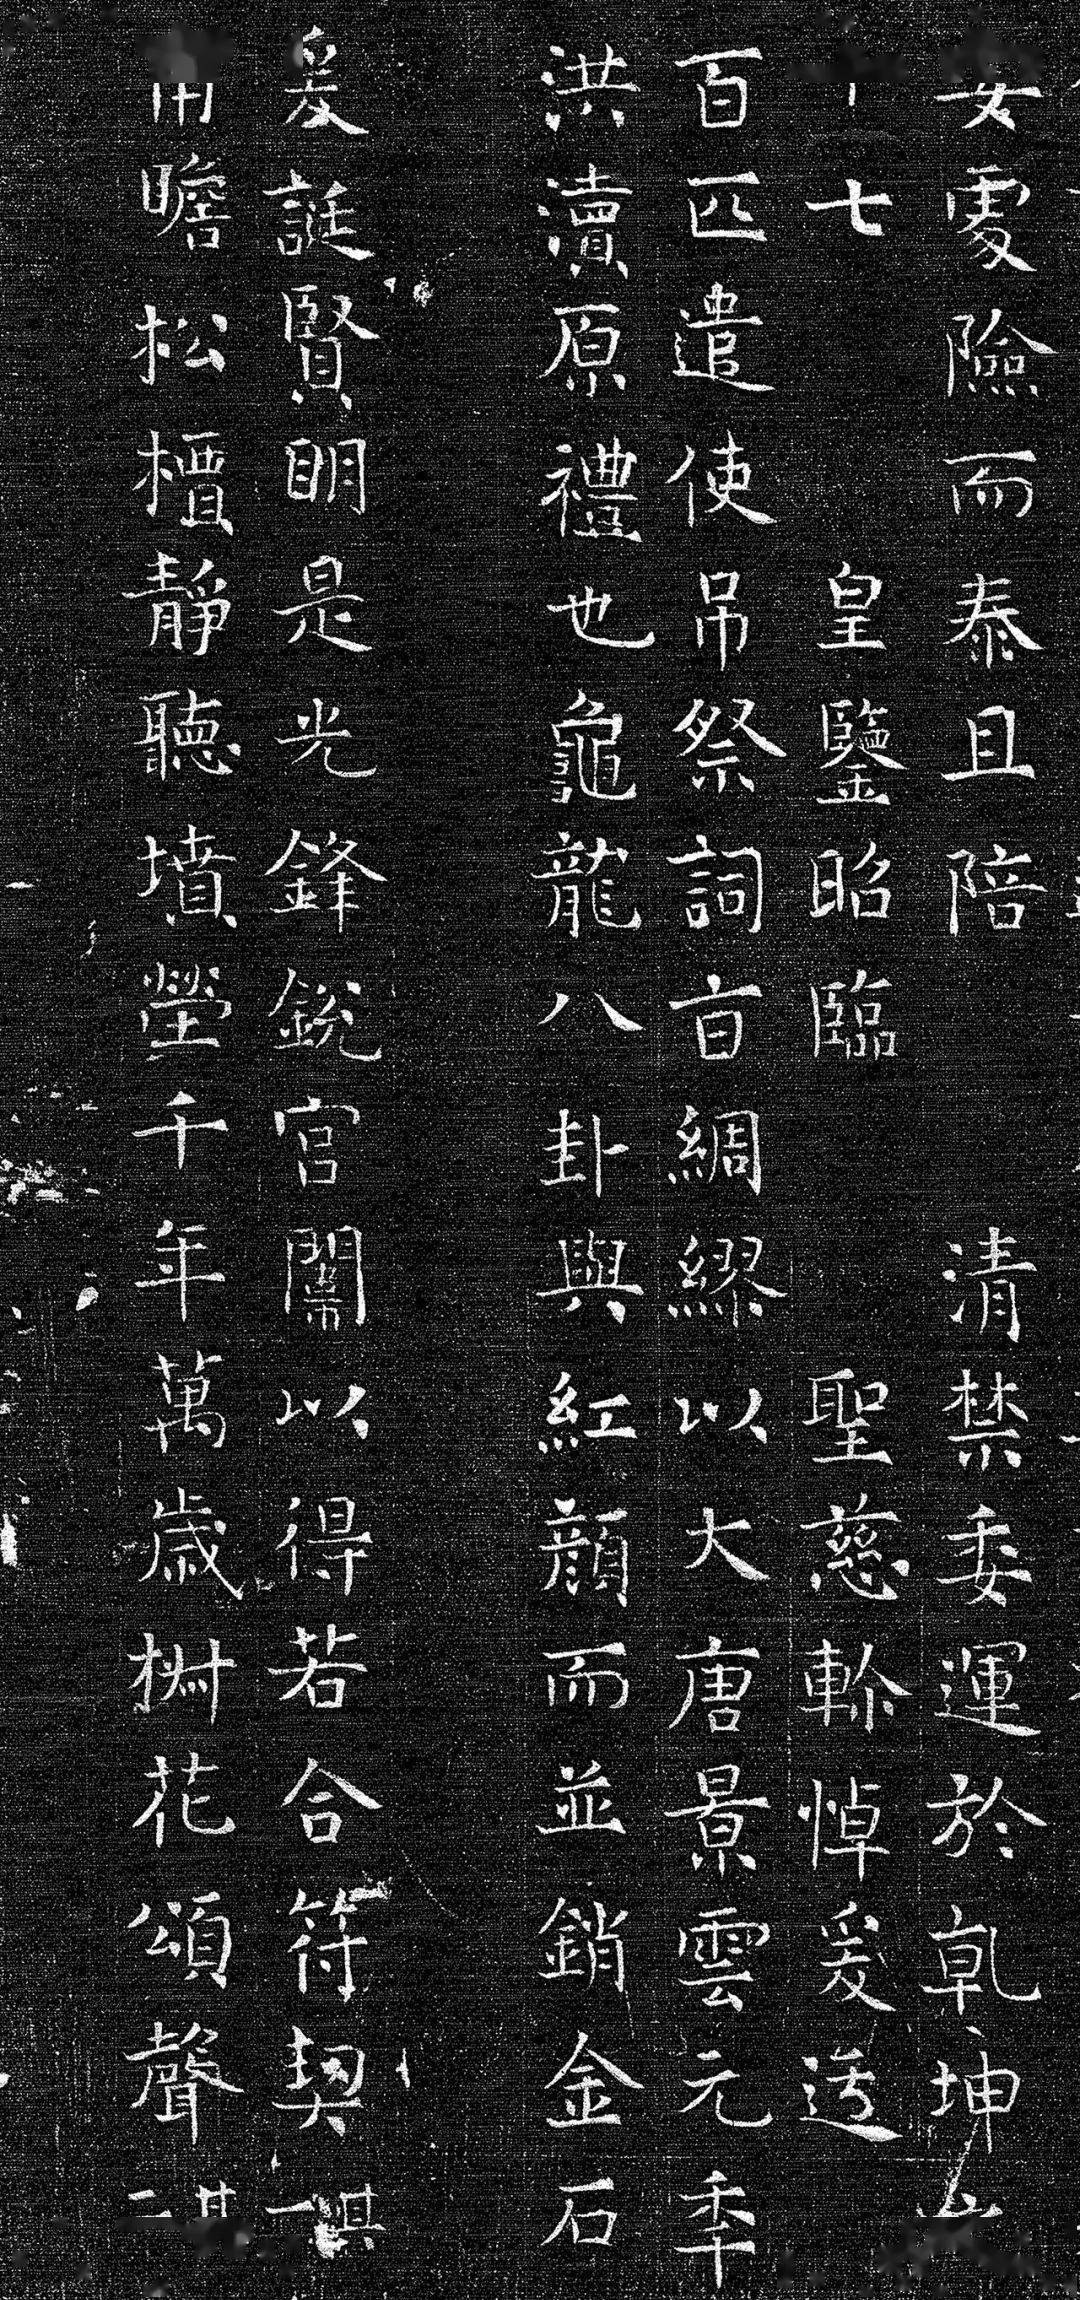 安處險而泰且陪清禁委運於乹坤
十七皇鑒昭臨聖慈軫悼爰送
百匹遣使吊祭詞旨綢繆以大唐景雲元秊
洪瀆原禮也龜龍八卦與紅顏而並銷金石
爰誕賢明是光鋒銳宫闈以得若合符契
用瞻松檟靜聽墳塋千年萬歲椒花頌聲